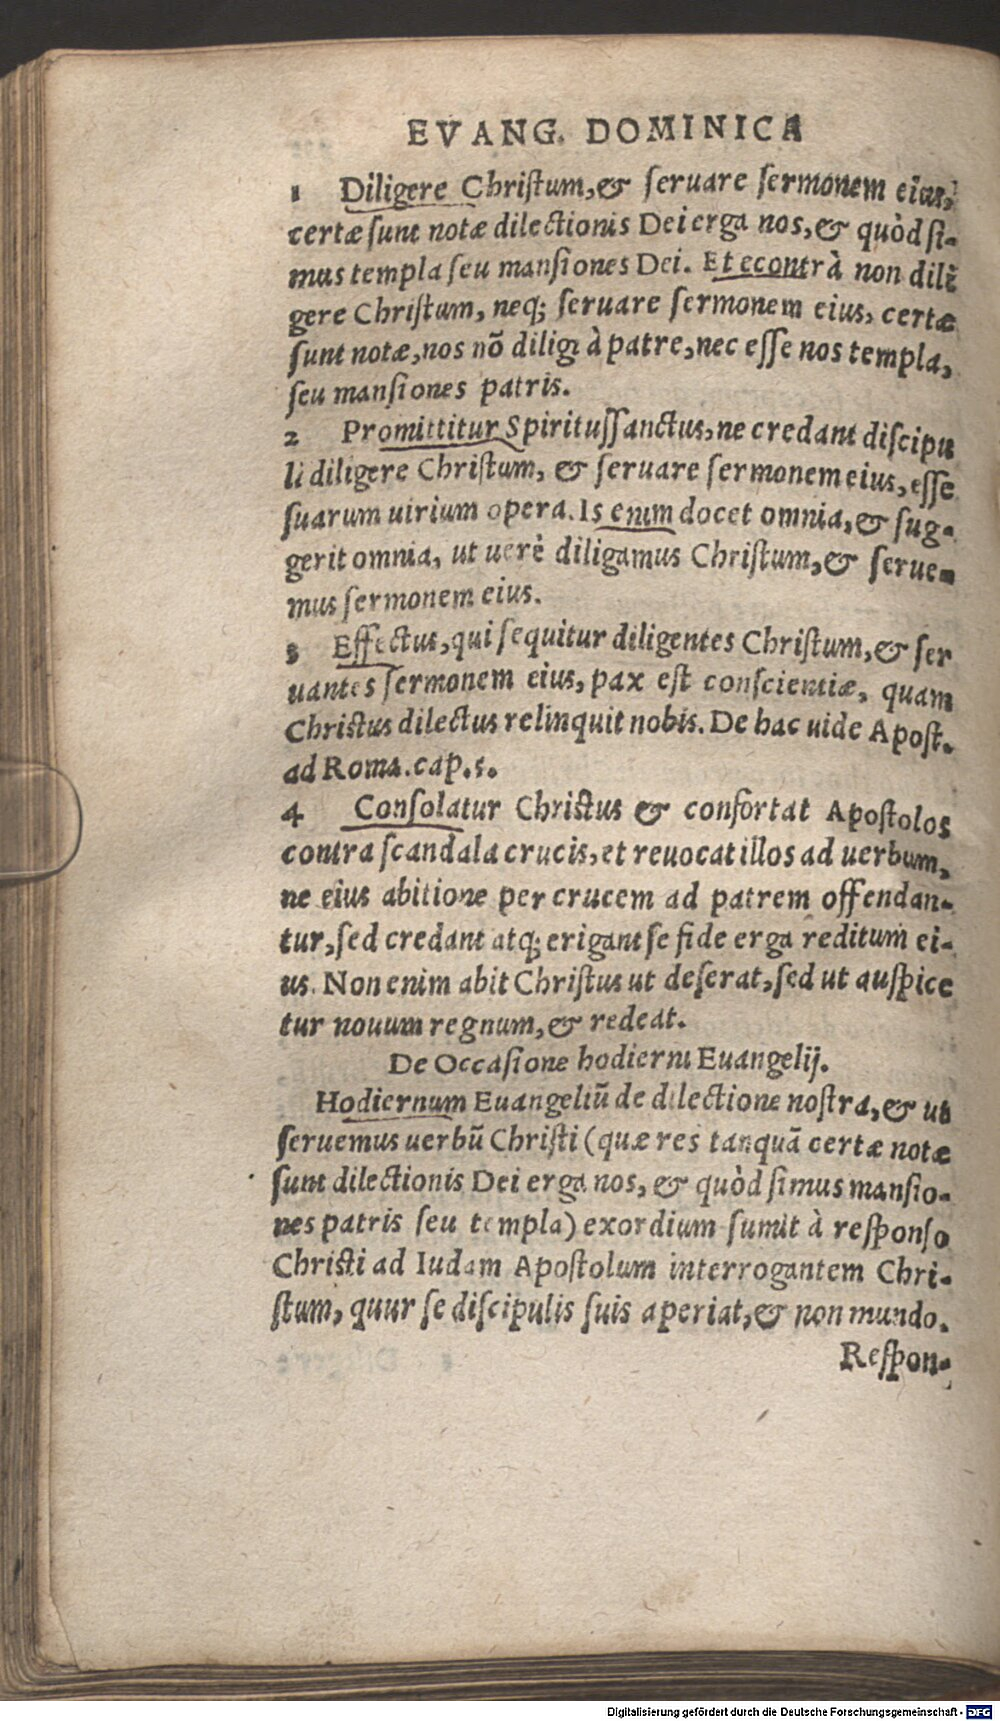 EVANG. DOMINICA
1 Diligere Chriſtum, & ſeruare ſermonem eius,
certæ ſunt notæ dilectionis Dei erga nos, & quòd ſi-
mus templa ſeu manſiones Dei. Et econtrà non dilẽ
gere Chriſtum, neq; ſeruare ſermonem eius, certæ
ſunt notæ, nos nõ diligi à patre, nec eſſe nos templa,
ſeu manſiones patris.
2 Promittitur Spirituſſanctus, ne credant diſcipu
li diligere Chriſtum, & ſeruare ſermonem eius, eſſe
ſuarum uirium opera. Is enim docet omnia, & ſug-
gerit omnia, ut uerè diligamus Chriſtum, & ſerue-
mus ſermonem eius.
3 Effectus, qui ſequitur diligentes Chriſtum, & ſer
uantes ſermonem eius, pax est conſcientiæ, quam
Chriſtus dilectus relinquit nobis. De hac uide Apoſt.
ad Roma. cap. 5.
4 Conſolatur Chriſtus & confortat Apoſtolos
contra ſcandala crucis, et reuocat illos ad uerbum,
ne eius abitione per crucem ad patrem offendan-
tur, ſed credant atq; erigant ſe fide erga reditum ei-
us. Non enim abit Chriſtus ut deſerat, ſed ut auſpice
tur nouum regnum, & redeat.
De Occaſione hodierni Euangelij.
Hodiernum Euangeliũ de dilectione noſtra, & ut
ſeruemus uerbũ Chriſti (quæ res tanquã certæ notæ
ſunt dilectionis Dei erga nos, & quòd ſimus manſio-
nes patris ſeu templa) exordium ſumit à reſponſo
Chriſti ad Iudam Apoſtolum interrogantem Chri-
ſtum, quur ſe diſcipulis ſuis aperiat, & non mundo.
Reſpon-
Digitalisierung gefördert durch die Deutsche Forschungsgemeinschaft - DFG